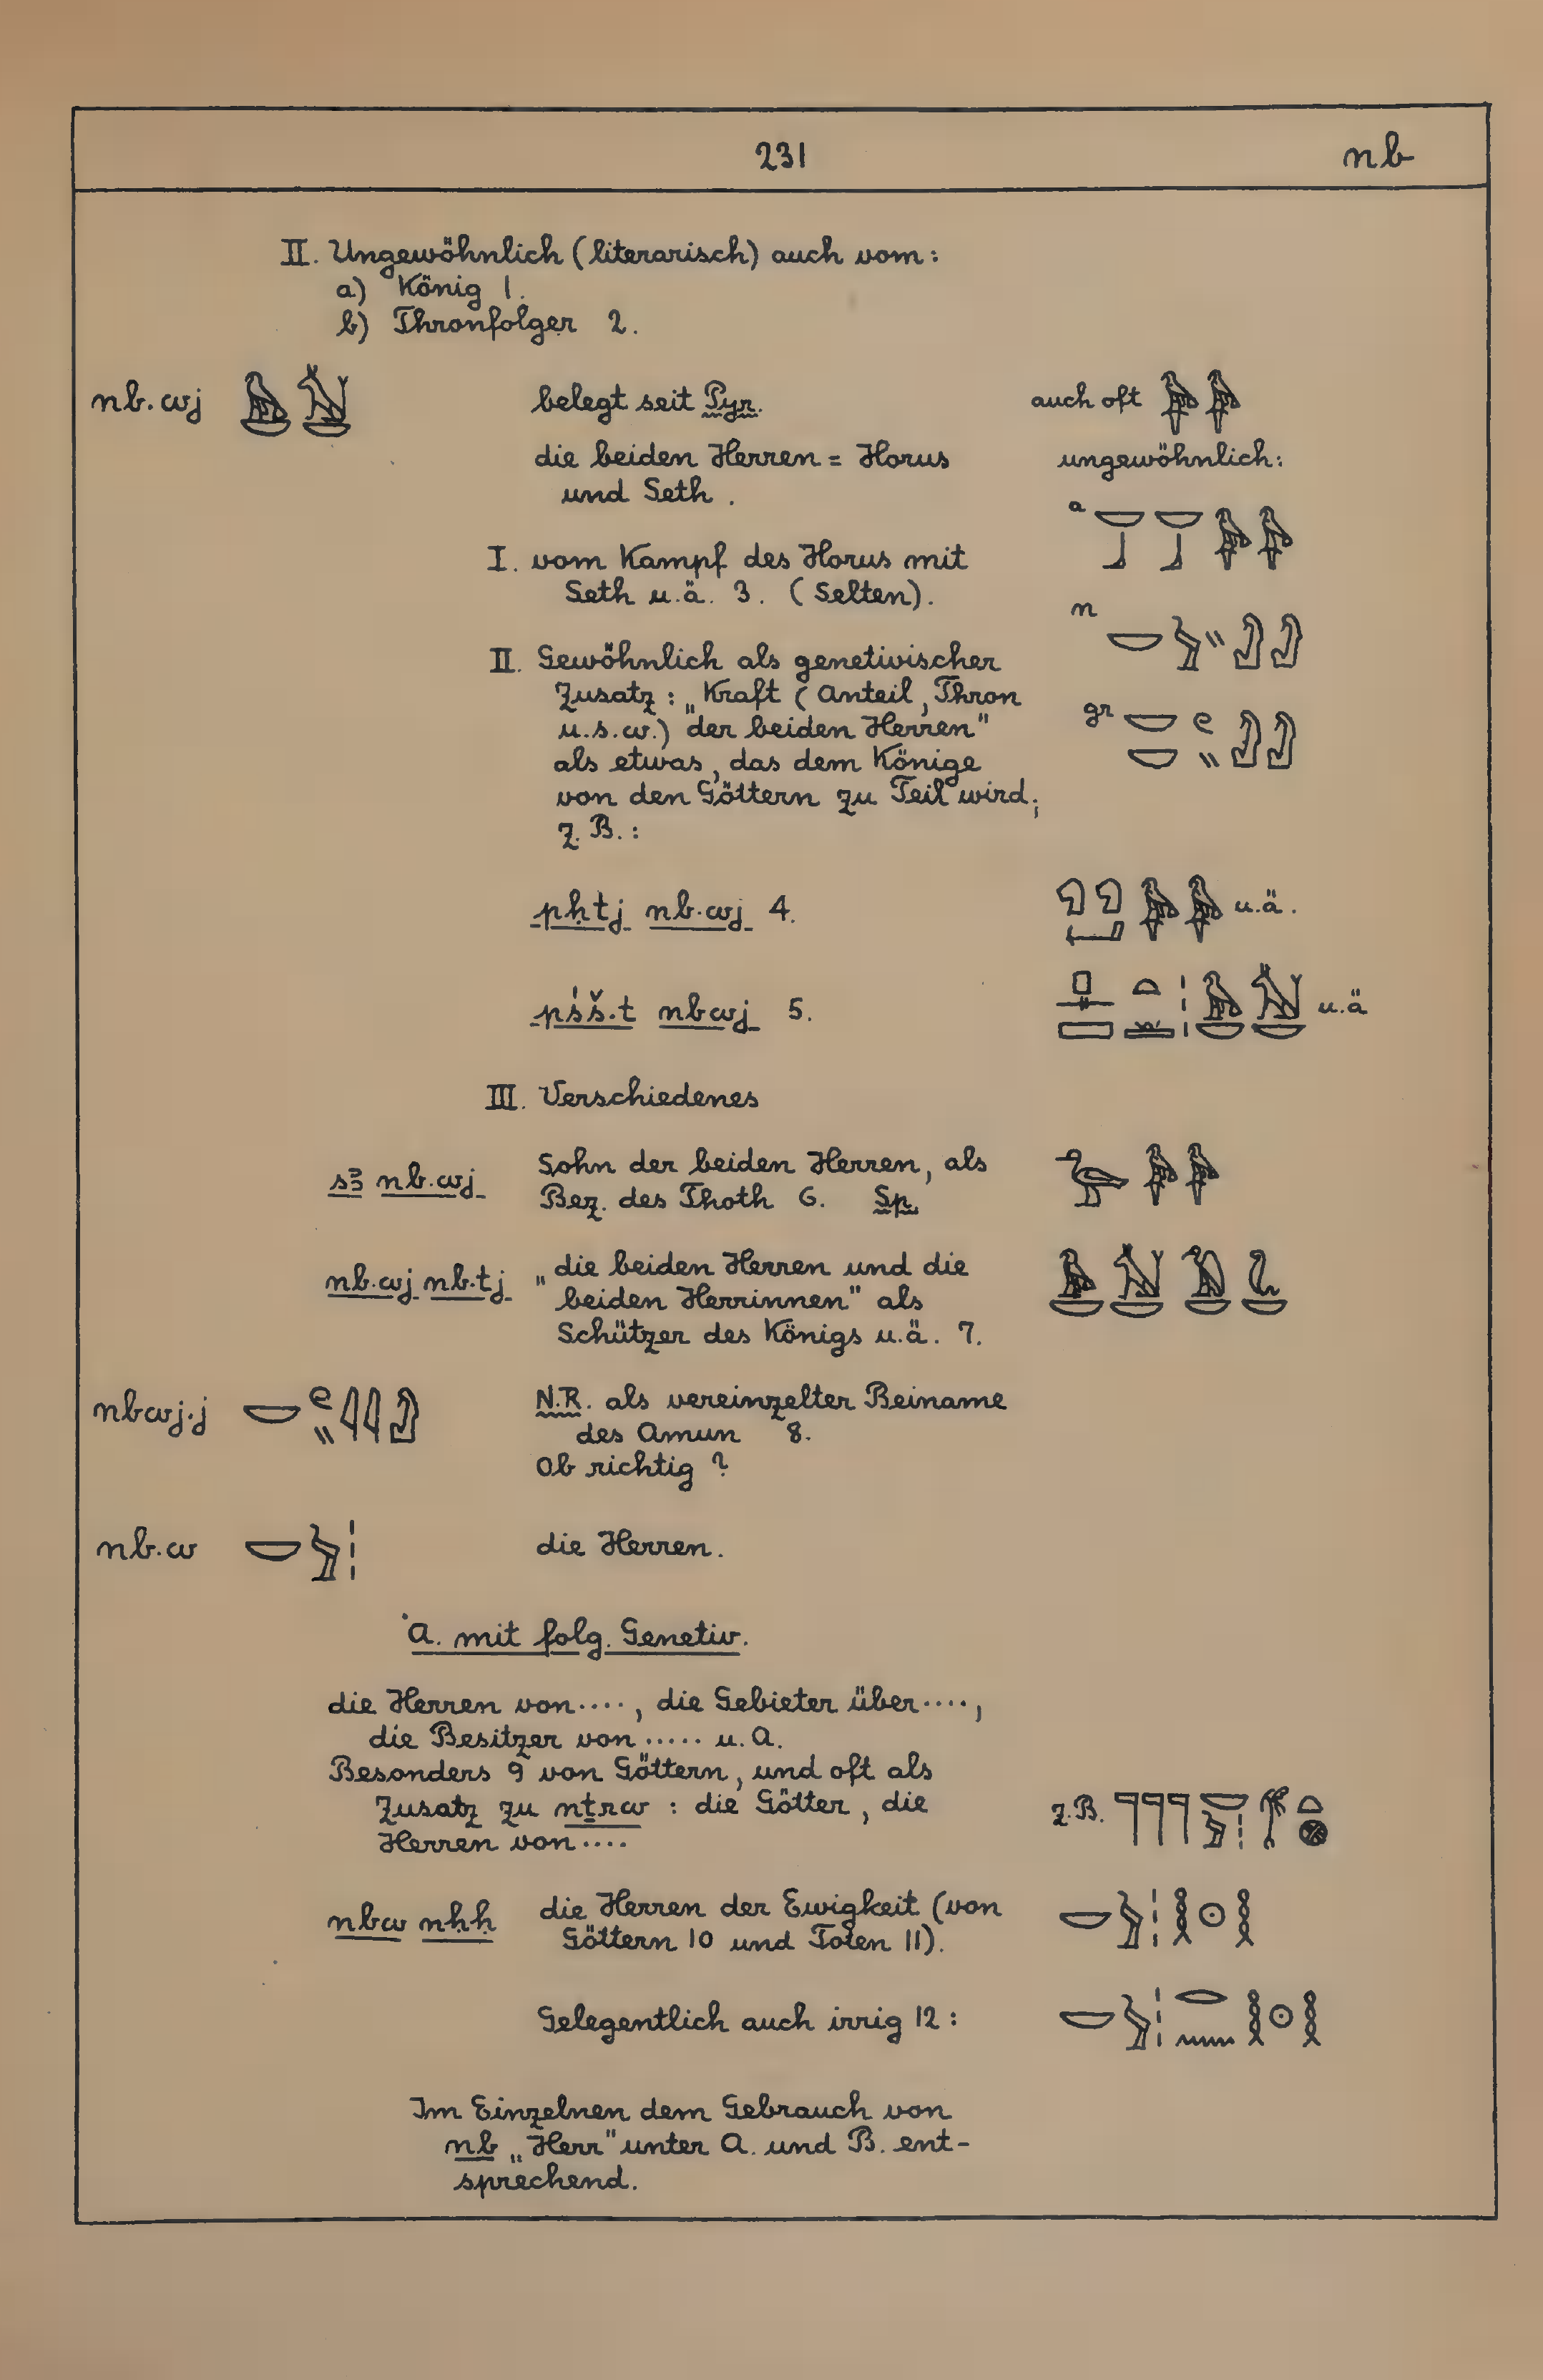 231 nb
II. Ungewöhnlich (literarisch) auch vom:
a) König 1.
b) Thronfolger 2.
nb.wj belegt seit Pyr. auch oft
die beiden Herren = Horus ungewöhnlich:
und Seth.
a
I. vom Kampf des Horus mit
Seth u.ä. 3. (Selten).
n
II. Gewöhnlich als genetivischer
Zusatz: „Kraft (Anteil, Thron
u.s.w.) der beiden Herren"
gr
als etwas, das dem Könige
von den Göttern zu Teil wird;
z.B.:
pḥtj nb.wj 4. u.ä.
pśš.t nbwj 5. u.ä
III. Verschiedenes
sꜣ nb.wj Sohn der beiden Herren, als
Bez. des Thoth 6. Sp.
nb.wj nb.tj „die beiden Herren und die
beiden Herrinnen" als
Schützer des Königs u.ä. 7.
nbwj.j N.R. als vereinzelter Beiname
des Amun 8.
Ob richtig?
nb.w die Herren.
A. mit folg. Genetiv.
die Herren von...., die Gebieter über....,
die Besitzer von..... u.A.
Besonders 9 von Göttern, und oft als
Zusatz zu nṯrw : die Götter, die z.B.
Herren von....
nbw nḥḥ die Herren der Ewigkeit (von
Göttern 10 und Toten 11).
Gelegentlich auch irrig 12:
Im Einzelnen dem Gebrauch von
nb „Herr" unter A. und B. ent-
sprechend.